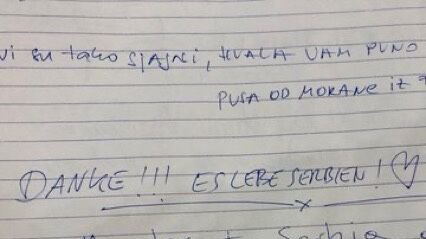 su tako sjajni, HVALA VAM PUNO
PUSA OD MORANE iz
DANKE!!! ES LEBE SERBIEN! ♡